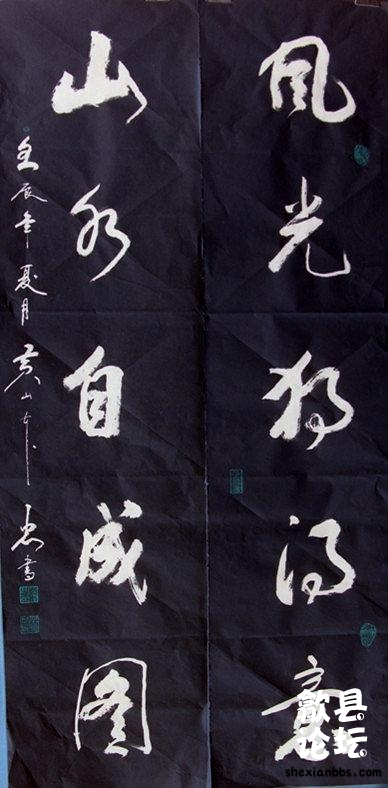 风光独得意
山水自成图
壬辰年夏月黄山忠书
歙县
论坛
shexianbbs.com